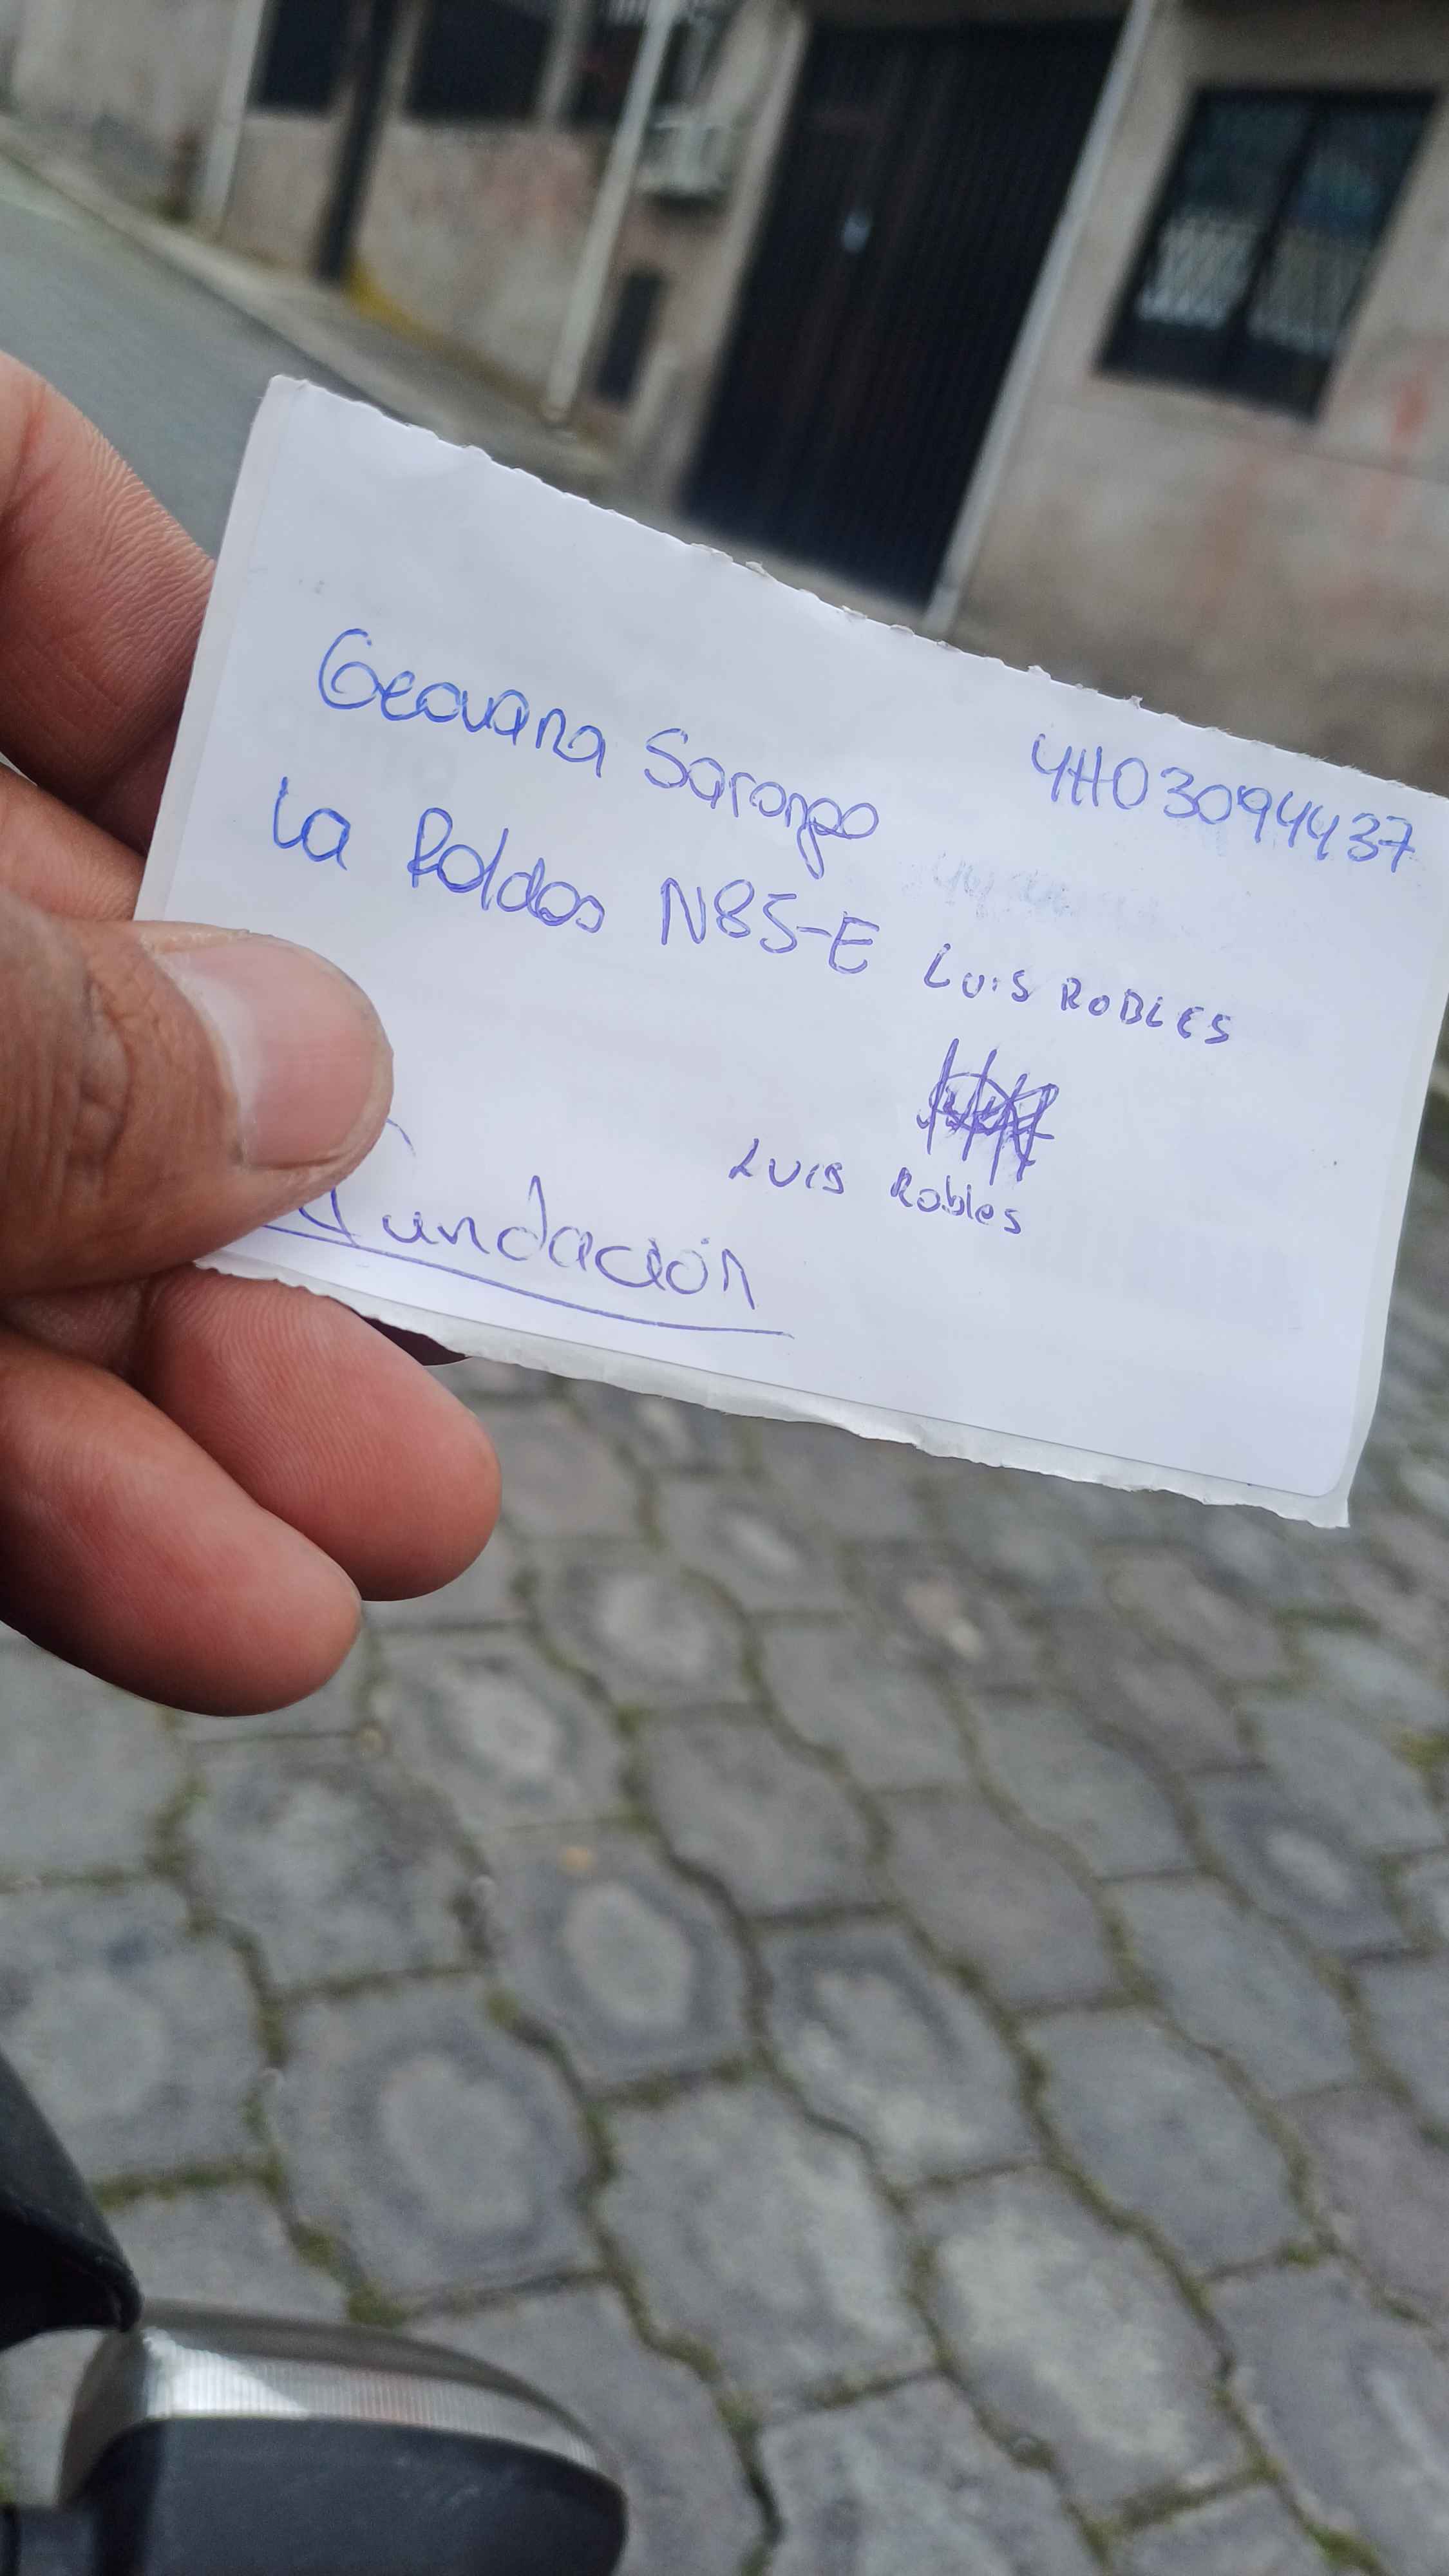 Geovana Sarango
4HO3094437
La Roldos N85-E LUIS ROBLES
LUIS Robles
Fundación